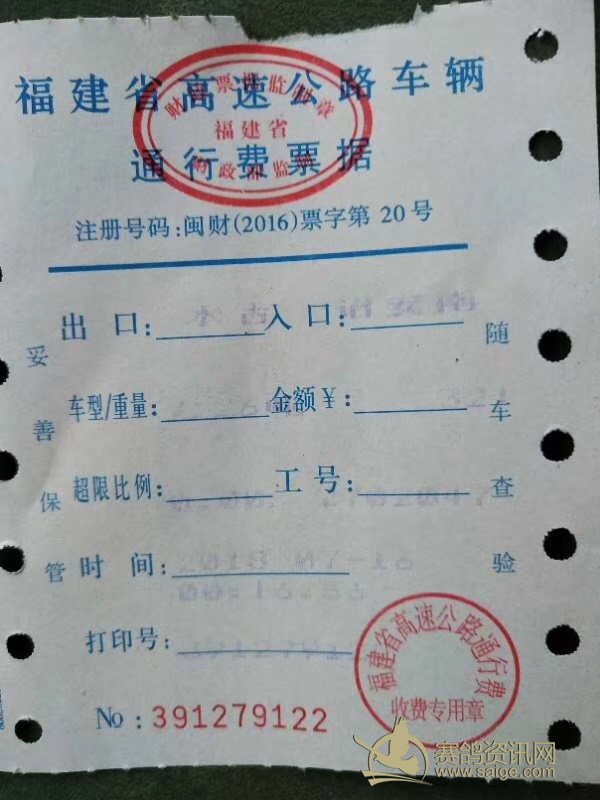 福建省高速公路车辆
通行费票据
福建省
注册号码:闽财(2016)票字第 20号
出口: 入口:
车型/重量: 金额¥:
超限比例: 工号:
时间:
打印号:
妥善保管
随车查验
No:391279122
福建省高速公路通行费
收费专用章
赛鸽资讯网
www.saige.com